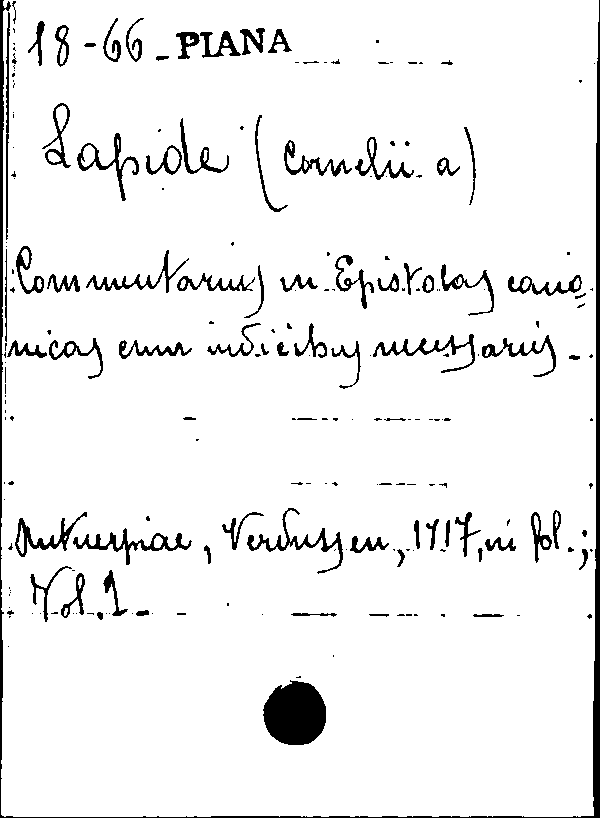 18-66-PIANA
Lapide (Cornelii a)
Commentarius in Epistolas cano=
nicas cum indicibus necessariis-
Antuerpiae, Verdussen, 1717, in fol.;
Vol. 1-